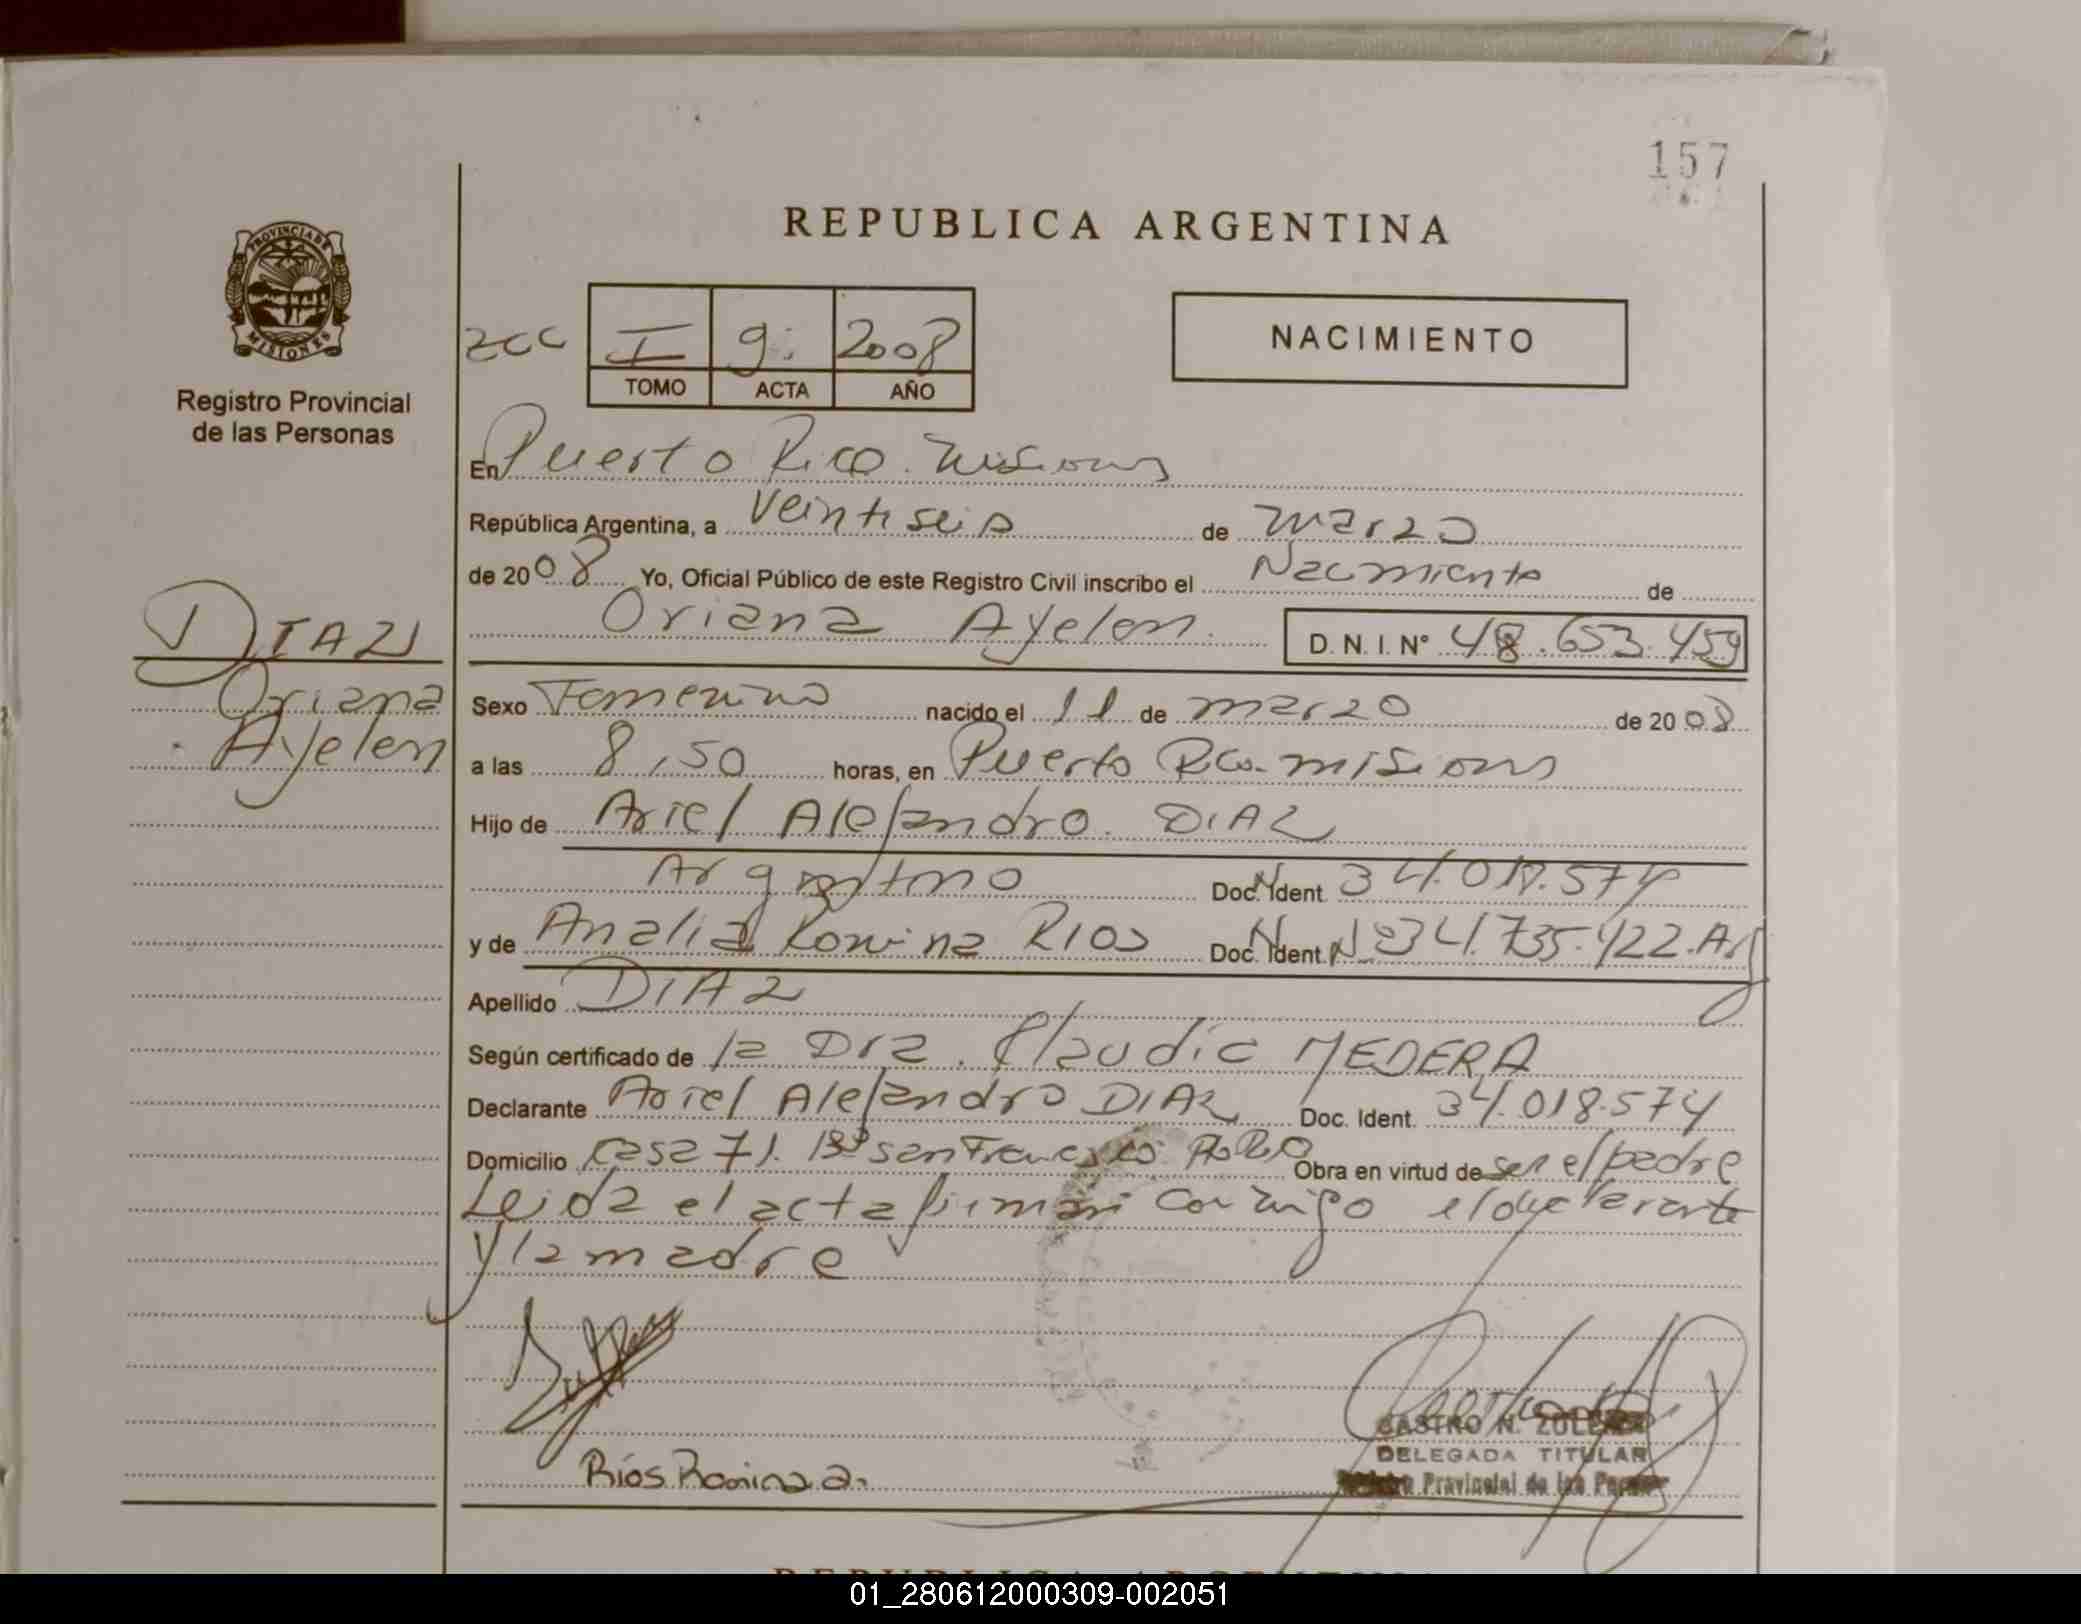 157
REPUBLICA ARGENTINA
PROVINCIA DE
MISIONES
Registro Provincial
de las Personas
I 9 2008
TOMO ACTA AÑO
NACIMIENTO
En Puerto Rico. Misiones
República Argentina, a veintiseis de marzo
de 2008 Yo, Oficial Público de este Registro Civil inscribo el Nacimiento de
Oriana Ayelen. D. N. I. N° 48.653.459
DIAZ
Oriana
Ayelen
Sexo Femenino nacido el 11 de marzo de 2008
a las 8,50 horas, en Puerto Rco. misiones
Hijo de Ariel Alejandro. DIAZ
Argentino Doc. Ident. 34.018.574
y de Analia Romina RIOS Doc. Ident. N° 34.735.422. Arg
Apellido DIAZ
Según certificado de la Dra. Claudia MEDERA
Declarante Ariel Alejandro DIAZ Doc. Ident. 34.018.574
Domicilio casa 71. B° san Francisco Obra en virtud de ser el padre
Leida el acta firman conmigo el declarante
y la madre
Ríos Romina a.
CASTRO N.
DELEGADA TITULAR
Provincial de las
REPUBLICA ARGENTINA
01_280612000309-002051